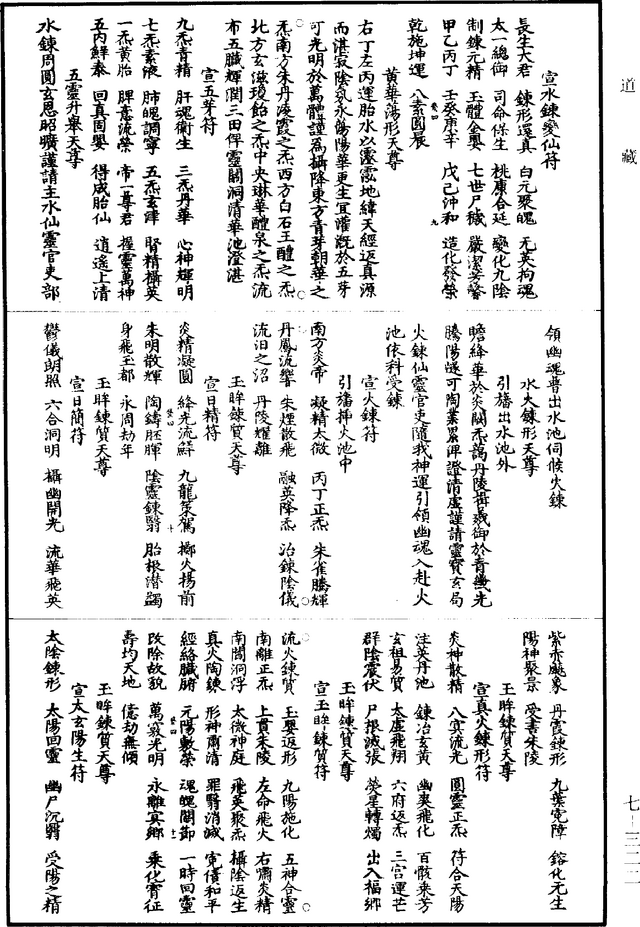 道藏
宣水鍊變仙符
長生大君 鍊形還真 白元聚魄 无英拘魂
太一總御 司命保生 桃康合延 變化九陰
制鍊元精 玉體金輿 七世尸穢 嚴潔芳馨
甲乙丙丁 壬癸庚辛 戊己沖和 造化發榮
乾施坤運 八素圓辰
黄華蕩形天尊
右丁左丙運胎水以澂地緯天經返真源
而湛寂陰炁永蕩陽華更生宜灌溉於五芽
可光明於萬體謹為攝降東方青芽朝華之
炁南方朱丹凌霞之炁西方白石玉醴之炁
北方玄滋瓊飴之炁中央琳華醴泉之炁流
布五臟輝潤三田俾靈關洞清華池澄湛
宣五芽符
九炁青精 肝魂衛生 三炁丹華 心神輝明
七炁素液 肺魄調寧 五炁玄澤 腎精攝英
一炁黄胎 脾意流榮 帝一尊君 握靈萬神
五内鮮泰 回真固嬰 得成胎仙 逍遙上清
五靈升舉天尊
水鍊周圓玄恩昭曠謹請主水仙靈官吏部
領幽魂普出水池伺候火鍊
水火鍊形天尊
引旛出水池外
瞻絳華於炎闕炁藹丹陵攝羲御於青畿光
騰陽燧可陶業累俾證清虛謹請靈寶玄局
火鍊仙靈官吏隨我神運引領幽魂入赴火
池依科受鍊
引旛擲火池中
宣火鍊符
南方炎帝 凝精太微 丙丁正炁 朱雀騰輝
丹鳳流響 朱煙散飛 融英降炁 冶鍊陰儀
流汨之沼 丹陵耀離
玉眸鍊質天尊
宣日精符
炎精凝圓 絳光流鮮 九龍策駕 擲火揚前
朱明散輝 陶鑄胚暉 陰靈鍊翳 胎根潛蠲
身飛玉都 永周劫年
玉眸鍊質天尊
宣日簡符
鬱儀朗照 六合洞明 攝幽開光 流華飛英
紫赤飈象 丹霞鍊形 九葉寃障 鎔化元生
陽神聚景 受書朱陵
玉眸鍊質天尊
宣真火鍊形符
炎神散精 八㝠流光 圓靈正炁 符合天陽
注英丹池 鍊冶玄黄 幽爽飛化 百骸來芳
玄祖易質 太虛飛翔 六府返炁 三宫運芒
群陰震伏 尸根滅張 熒星轉燭 出入福鄉
玉眸鍊質天尊
宣玉眸鍊質符
流火鍊質 玉嬰返形 九陽施化 五神合靈
南離正炁 上貫朱陵 左命飛火 右肅炎精
南閻洞浮 太微神庭 飛英聚炁 攝陰返生
真火陶鍊 形神肅清 罪翳消滅 寃債和平
經絡臟腑 元陽敷榮 魂魄關節 一時回靈
改除故貌 萬竅光明 永離㝠鄉 乘化霄征
壽均天地 億劫無傾
玉眸鍊質天尊
宣太玄陽生符
太陰鍊形 太陽回靈 幽尸沉翳 受陽之精
七—三二二